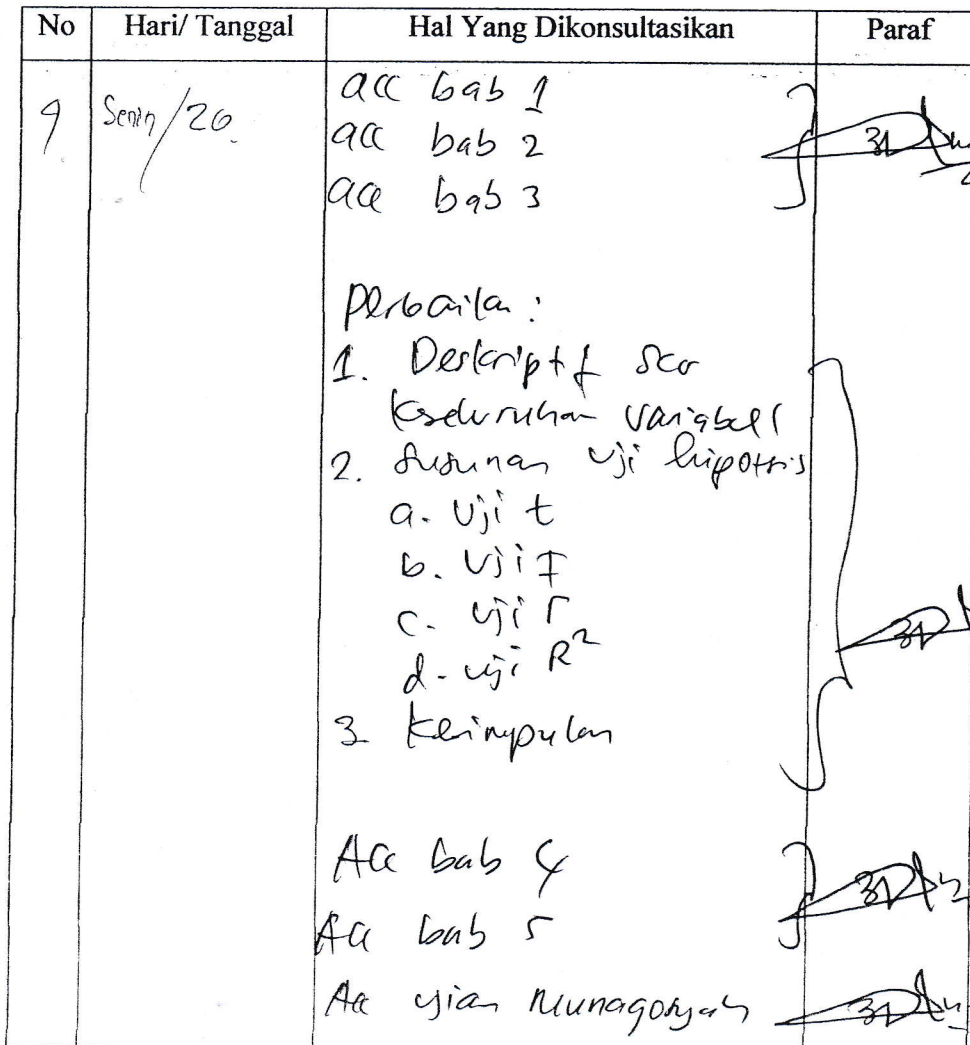 No Hari/ Tanggal Hal Yang Dikonsultasikan Paraf
9 Senin/26. acc bab 1
acc bab 2
acc bab 3
Perbaikan :
1. Deskriptif
keseluruhan variabel
2. Susunan uji hipotesis
a. Uji t
b. Uji F
c. Uji r
d. uji R²
3 Kesimpulan
Acc bab 4
Acc bab 5
Acc ujian Munaqosyah